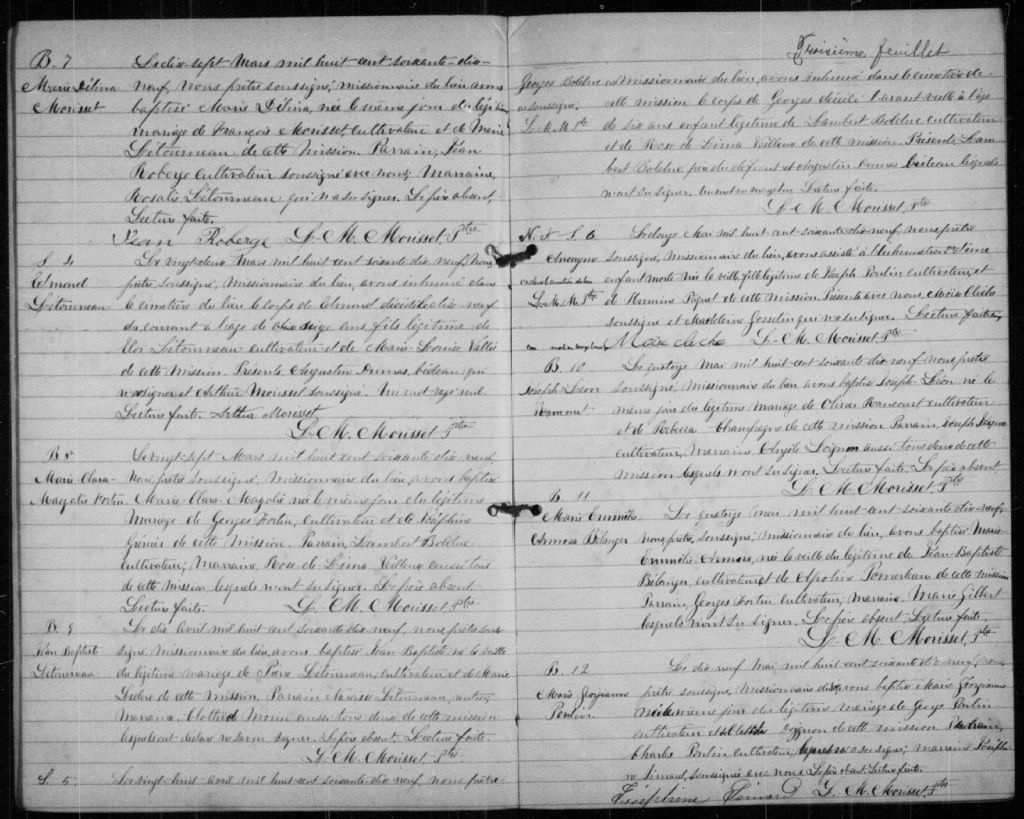 B. 7
Marie Délina
Morisset
Le dix-sept Mars mil huit cent soixante-dix-
neuf, nous prêtre soussigné, missionnaire du lieu, avons
baptisé Marie Délina, née le même jour du légitime
mariage de François Morisset cultivateur et de Marie
Létourneau de cette Mission. Parrain, Jean
Roberge cultivateur soussigné avec nous; Marraine,
Rosalie Létourneau qui n'a su signer. Le père absent.
Lecture faite.
Jean Roberge L. M. Morisset, Ptre
S. 4
Edmond
Létourneau
Le vingt-deux Mars mil huit cent soixante dix neuf, Nous
prêtre, soussigné, Missionnaire du lieu, avons inhumé dans
le cimetière du lieu le corps de Edmond décédé le dix neuf
du courant à l'âge de seize ans, fils légitime de
Eloi Létourneau cultivateur et de Marie-Louise Vallée
de cette Mission. Présents, Augustin Dumas, bedeau, qui
n'a signé et Arthur Morisset soussigné. Un mot rayé nul.
Lecture faite. Arthur Morisset
L. M. Morisset, Ptre
B. 8
Marie-Clara-
Magalie Fortin
Le vingt-sept Mars mil huit cent soixante dix neuf,
Nous, prêtre soussigné, Missionnaire du lieu, avons baptisé
Marie-Clara-Magalie née le même jour du légitime
Mariage de Georges Fortin, Cultivateur et de Joséphine
Grenier de cette Mission. Parrain, Lambert Bolduc
cultivateur; Marraine, Rose de Lima Veilleux aussi tous
de cette mission lesquels n'ont su signer. Le père absent.
Lecture faite. L. M. Morisset, Ptre
B. 9
Jean Baptiste
Létourneau
Le dix Avril mil huit cent soixante dix neuf, nous prêtre sous-
signé missionnaire du lieu, avons baptisé Jean Baptiste né la veille
du légitime mariage de Pierre Létourneau, cultivateur et de Marie
Leclerc de cette Mission. Parrain Narcisse Létourneau,
Marraine, Clothilde Morin aussi tous deux de cette mission
lesquels ont déclaré ne savoir signer. Le père absent. Lecture faite.
L. M. Morisset Ptre
S. 5
Le vingt-huit avril mil huit cent soixante dix neuf, nous prêtre-
Troisième feuillet
Georges Bolduc
soussigné.
L. M. M. Ptre
missionnaire du lieu, avons inhumé dans le cimetière de
cette mission le corps de Georges décédé l'avant veille à l'âge
de six ans enfant légitime de Lambert Bolduc cultivateur
et de Rose de Lima Veilleux de cette mission. Présents, Lam-
bert Bolduc père du défunt et Augustin Dumas bedeau lesquels
n'ont su signer. Lecture faite.
L. M. Morisset, Ptre
N. & S. 6
Anonyme
L. M. M. Ptre
Le douze Mai mil huit cent soixante dix neuf, nous prêtre
soussigné, Missionnaire du lieu, avons assisté à l'inhumation
enfant morte née la veille fille légitime de Joseph Poulin cultivateur, et
de Hermine Paquet de cette Mission. Présents avec nous, Moïse Cliche
soussigné et Madeleine Gosselin qui n'a su signer. Lecture faite
L. M. Morisset, Ptre
B. 10
Joseph Léon
Rancourt
Le quatorze Mai mil huit-cent soixante dix neuf nous prêtre
soussigné, Missionnaire du lieu avons baptisé Joseph-Léon né le
même jour du légitime mariage de Olivier Rancourt cultivateur
et de Rebecca Champagne de cette mission Parrain, Joseph
cultivateur, Marraine, aussi tous deux de cette
mission lesquels n'ont su signer. Lecture faite. Le père absent
L. M. Morisset, Ptre
B. 11
Marie Emmélie
Armosa Bélanger
Le quatorze mai mil huit cent soixante dix-neuf,
nous prêtre, soussigné, missionnaire du lieu, avons baptisé Marie
Emmélie-Armosa, née la veille du légitime de Jean-Baptiste
Bélanger, cultivateur et de Apoline Pomerleau de cette mission
Parrain, Georges Fortin cultivateur, marraine, Marie Gilbert
lesquels n'ont su signer. Le père absent. Lecture faite.
L. M. Morisset, Ptre
B. 12
Marie Georgianna
Poulin
Le dix neuf Mai mil huit cent soixante dix neuf, nous
prêtre soussigné, missionnaire du lieu, avons baptisé Marie Georgianna
née le même jour du légitime mariage de George Poulin
cultivateur et de de cette mission Parrain,
Charles Poulin cultivateur n'a su signer; marraine Joséphi-
ne Simard, soussignée avec nous. Le père absent. Lecture faite.
Joséphine Simard L. M. Morisset, Ptre